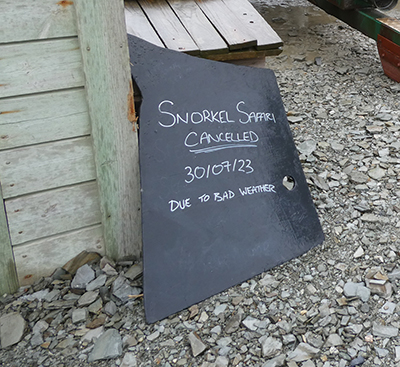 SNORKEL SAFARI
CANCELLED
30/07/23
DUE TO BAD WEATHER